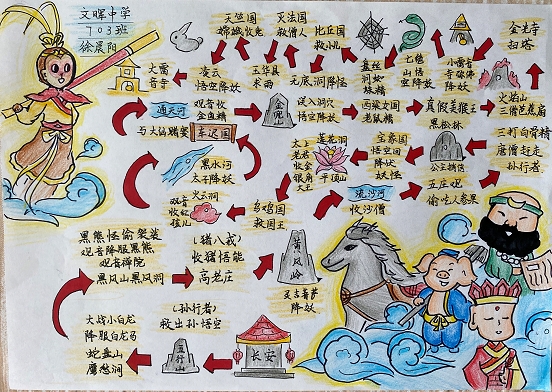 文晖中学
703班
徐晨阳
天竺国
嫦娥收兔
灭法国
救僧人
比丘国
救小儿
金光寺
扫塔
大雷
音寺
凌云
悟空降妖
玉华县
求雨
无底洞降怪
盘丝
洞蜘
蛛精
七绝
山悟
空降妖
小雷音
寺弥佛
降妖
通天河
观音收
金鱼精
金兜山
误入洞穴
悟空降妖
西梁女国
老鼠精
真假美猴王
黑松林
火焰山
三借芭蕉扇
与大仙赌变
车迟国
黑水河
太子降妖
太上
老君
收金
银角
大王
莲花洞
平顶山
宝象国
悟空回
降妖
妖怪
公主捎信
三打白骨精
唐僧赶走
孙行者
火云洞
观音
收红
孩儿
乌鸡国
救国王
流沙河
收沙僧
五庄观
偷吃人参果
黑熊怪偷袈裟
观音降服黑熊
观音禅院
黑风山黑风洞
(猪八戒)
收猪悟能
高老庄
黄风岭
灵吉菩萨
降妖
大战小白龙
降服白龙马
蛇盘山
鹰愁涧
(孙行者)
救出孙悟空
五行山
长安